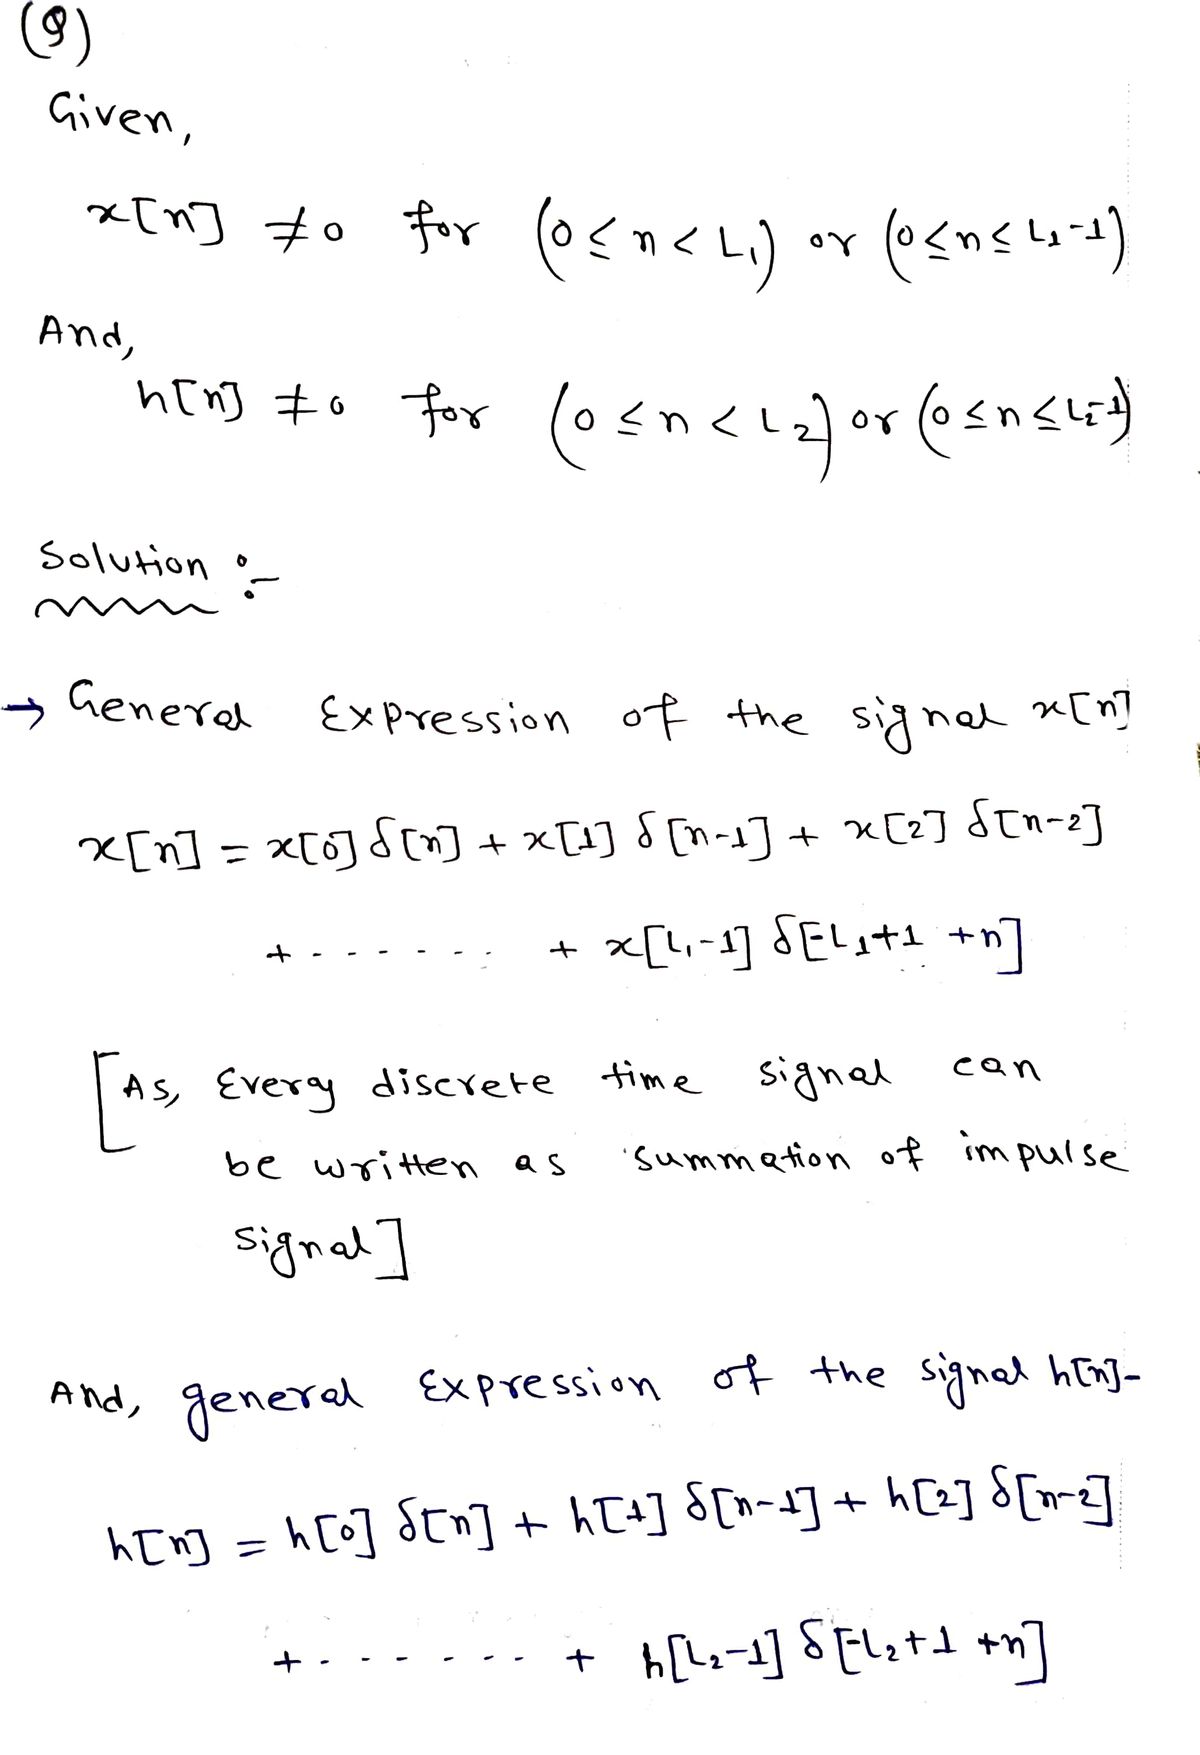 (Q)
Given,
x[n] ≠ 0 for (0 ≤ n < L₁) or (0 ≤ n ≤ L₁-1)
And,
h[n] ≠ 0 for (0 ≤ n < L₂) or (0 ≤ n ≤ L₂-1)
Solution :-
→ General Expression of the signal x[n]
x[n] = x[0] δ[n] + x[1] δ[n-1] + x[2] δ[n-2]
+ ....... + x[L₁-1] δ[-L₁+1 +n]
[As, Every discrete time signal can
be written as summation of impulse
signal]
And, general Expression of the signal h[n]-
h[n] = h[0] δ[n] + h[1] δ[n-1] + h[2] δ[n-2]
+ ........ + h[L₂-1] δ[-L₂+1 +n]